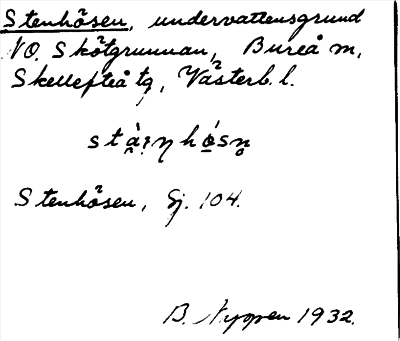 Stenhösen, undervattensgrund
NO. Skötgrunnan, Bureå m,
Skellefteå tg, Västerb. l.
Stenhösen, Sj. 104.
B. Nyppen 1932.